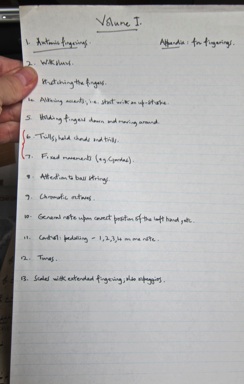 Volume I.
1. Antonia fingerings. Appendix: for fingerings.
2. With slurs.
Stretching the fingers.
4. Altering accents, i.e. start with an up-stroke.
5. Holding fingers down and moving around.
6. Trills, held chords and trills.
7. Fixed movements (e.g. ).
8. Attention to bass strings.
9. Chromatic octaves.
10. General note upon correct position of the left hand, etc.
11. Control: pedalling - 1, 2, 3, 4 on one note.
12. Tunes.
13. Scales with extended fingering, also arpeggios.